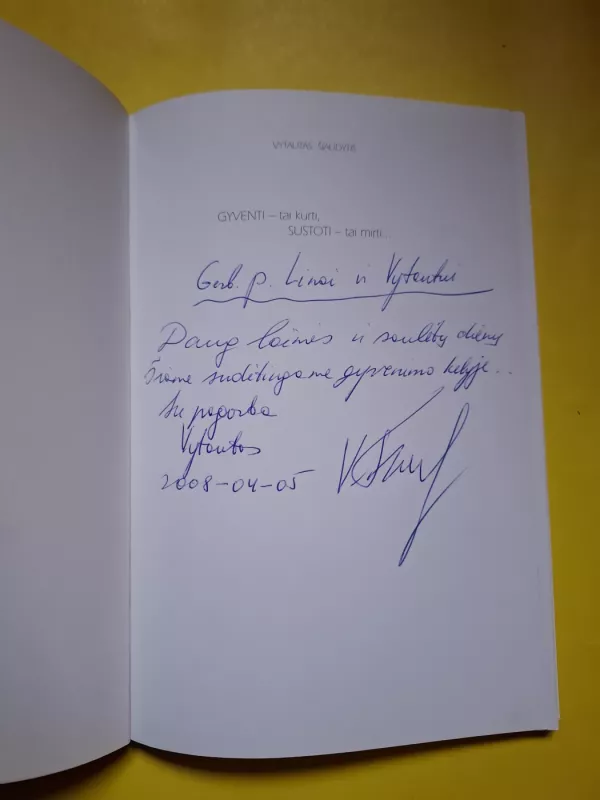 VYTAUTAS ŠAUDYRĖ
GYVENTI – tai kurti,
SUSTOTI – tai mirti...
Gerb. p. Linai ir Vytautui
Daug laimės ir saulėtų dienų
šiame sudėtingame gyvenimo kelyje..
Su pagarba
Vytautas
2008-04-05